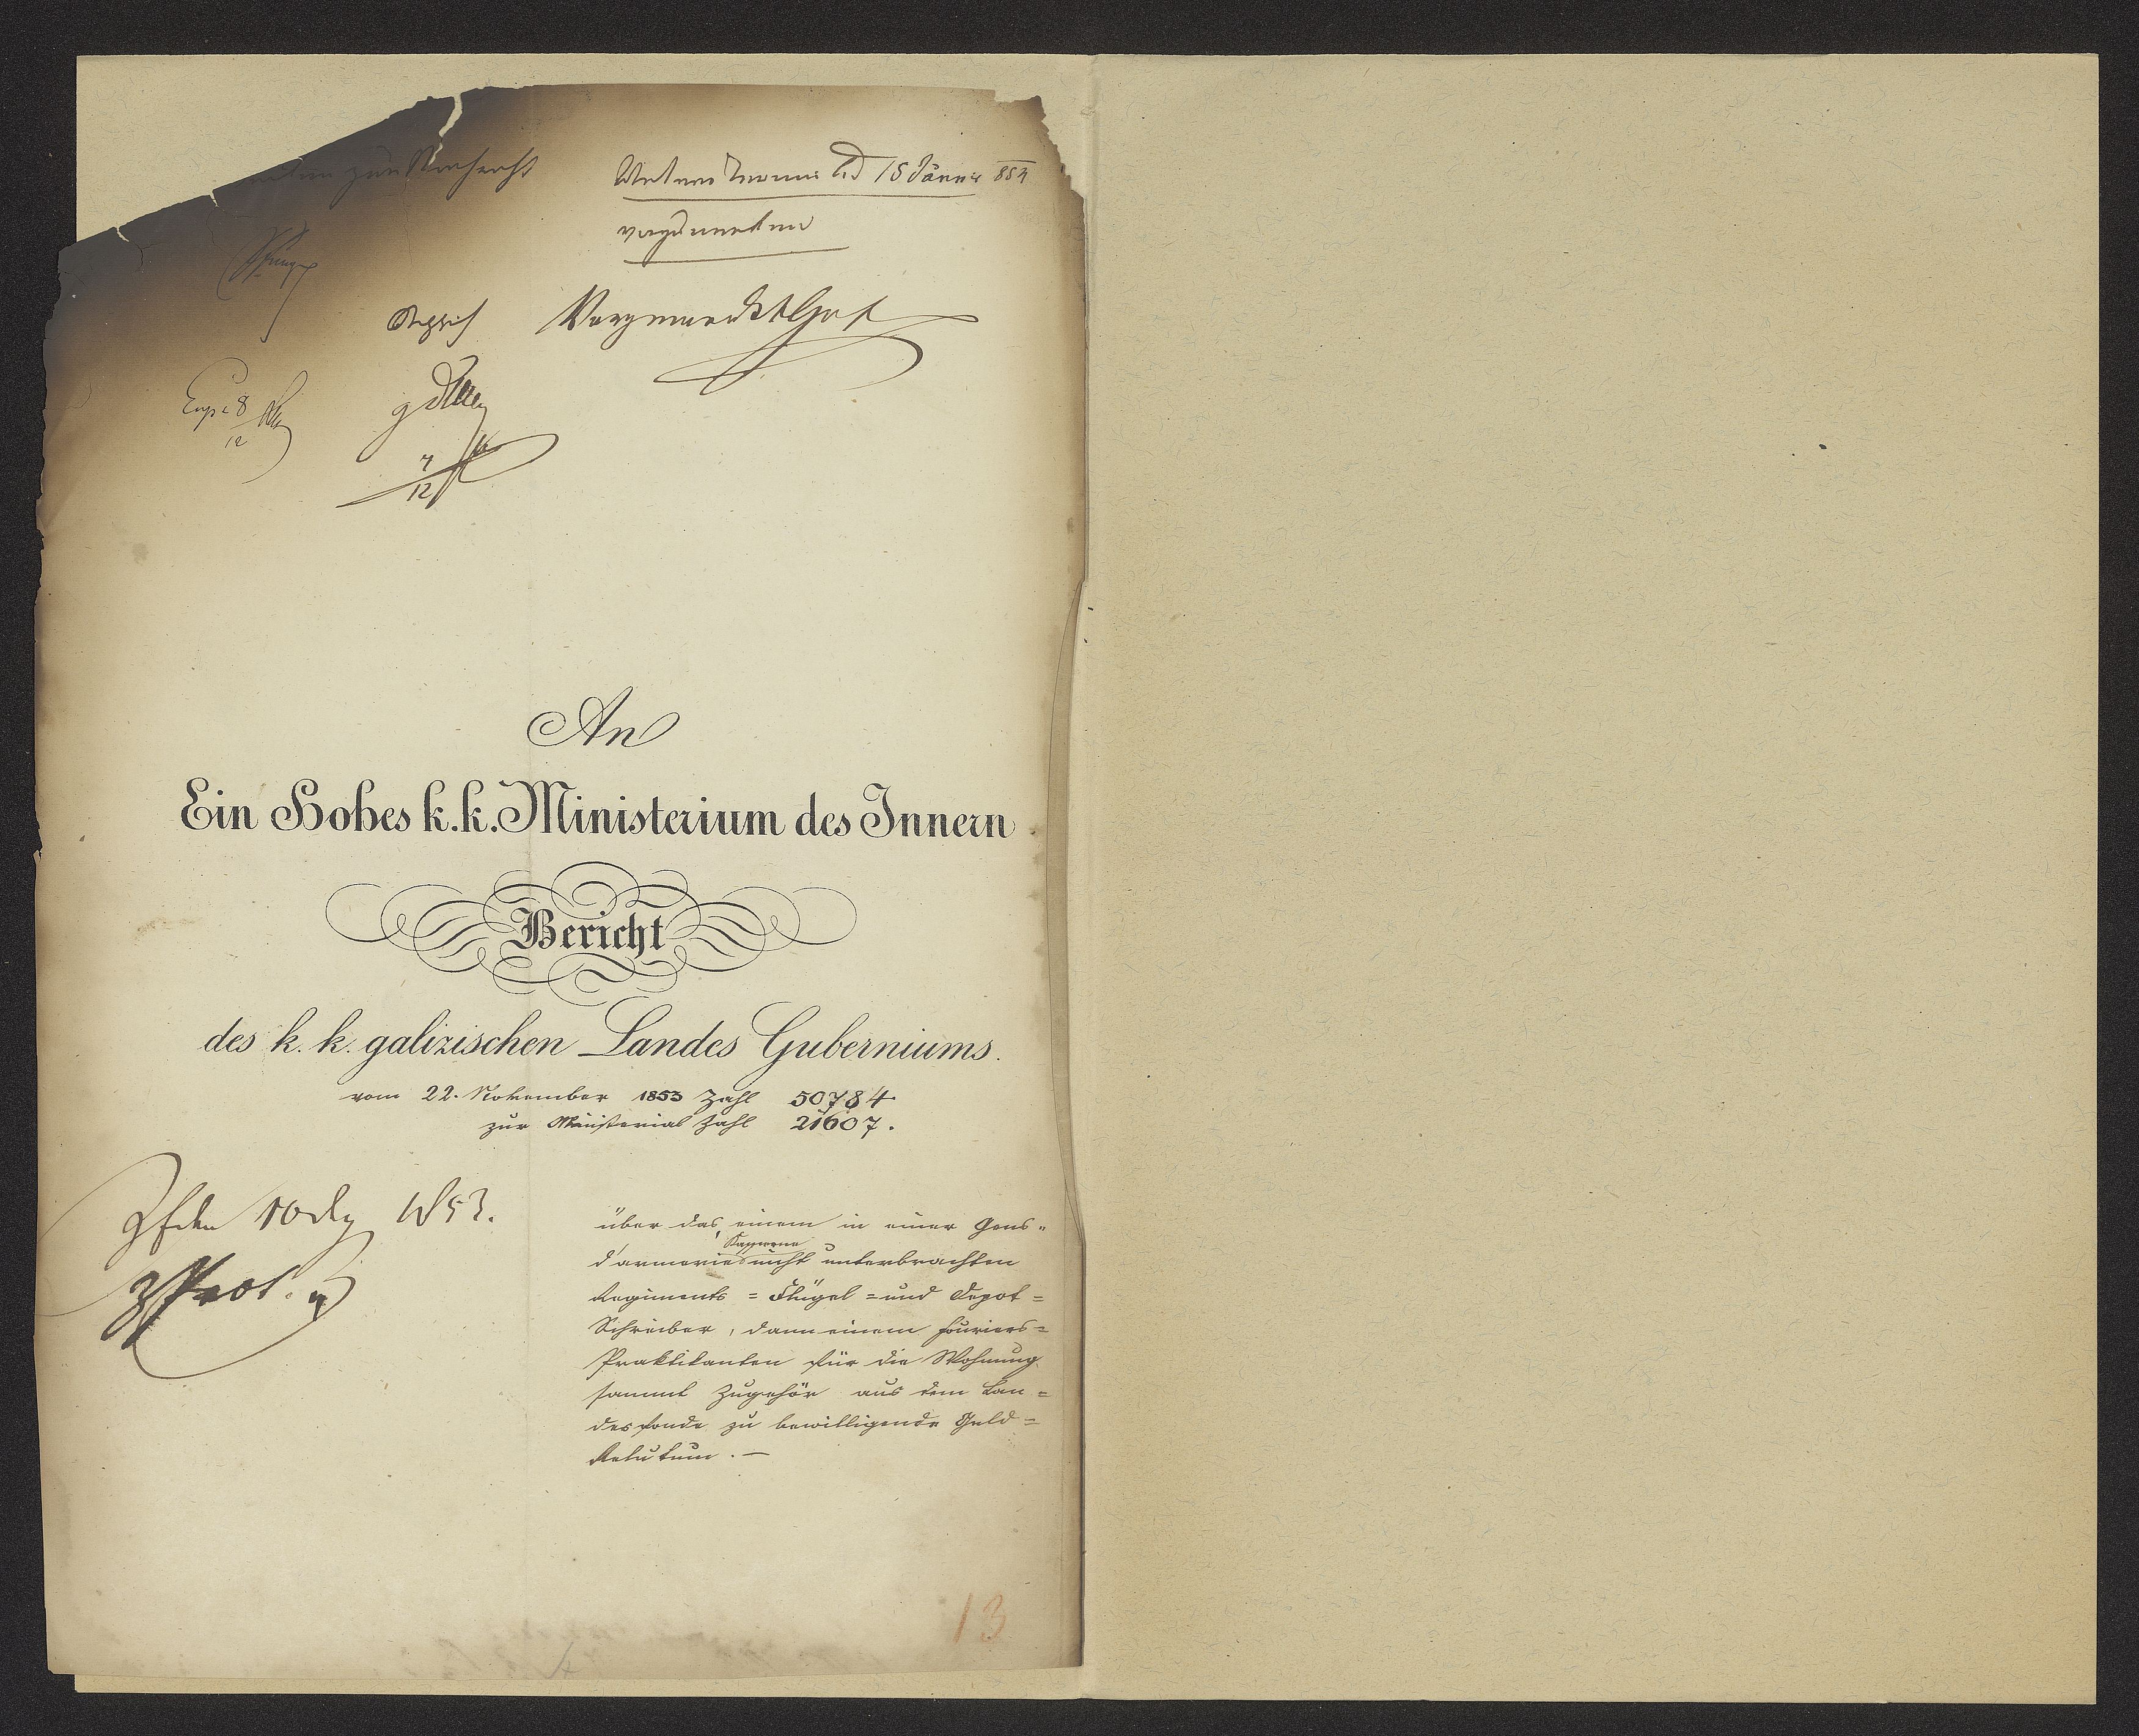 zur Nachricht
Unterm Termin bis 15 Jänner 854
vorzumerken
Vorgemerkt
Exp. 8
12
7
12
An
Ein Hohes k.k. Ministerium des Innern
Bericht
des k. k. galizischen Landes Guberniums.
vom 22. November 1853 Zahl 50784
zur Ministerial Zahl 21607.
10 1853.
über das, einem in einer Gens-
Kasserne
d'armerie nicht unterbrachten
Regiments = Flügel = und Depot =
Schreiber, dann einem Fouriers =
Praktikanten für die Wohnung
sammt Zugehör aus dem Lan =
desfonde zu bewilligende Geld =
Relutum. —
13